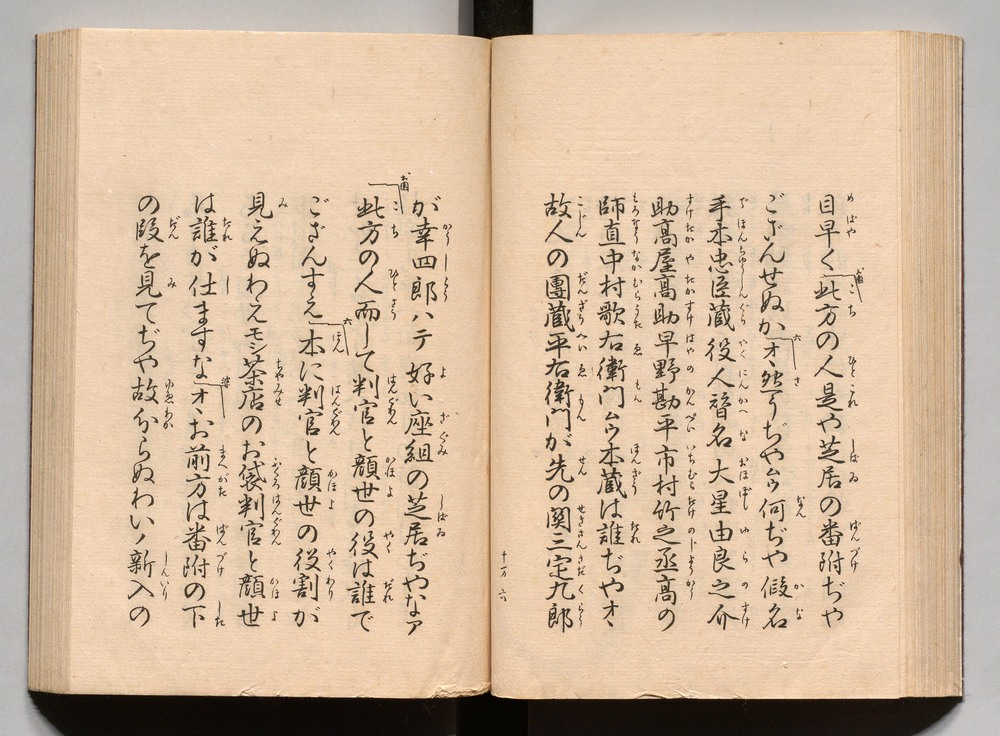 目早く此方の人是や芝居の番附ぢや
ござんせぬかオヽ然うぢやムウ何ぢや假名
手本忠臣蔵役人替名大星由良之介
助高屋高助早野勘平市村竹之丞高の
師直中村歌右衛門ムウ本蔵は誰ぢやオヽ
故人の團蔵平右衛門が先の関三定九郎
が幸四郎ハテ好い座組の芝居ぢやなア
此方の人而して判官と顔世の役は誰で
ござんすえ本に判官と顔世の役割が
見えぬわえモシ茶店のお袋判官と顔世
は誰が仕ますなオヽお前方は番附の下
の段を見てぢや故分らぬわいノ新入の